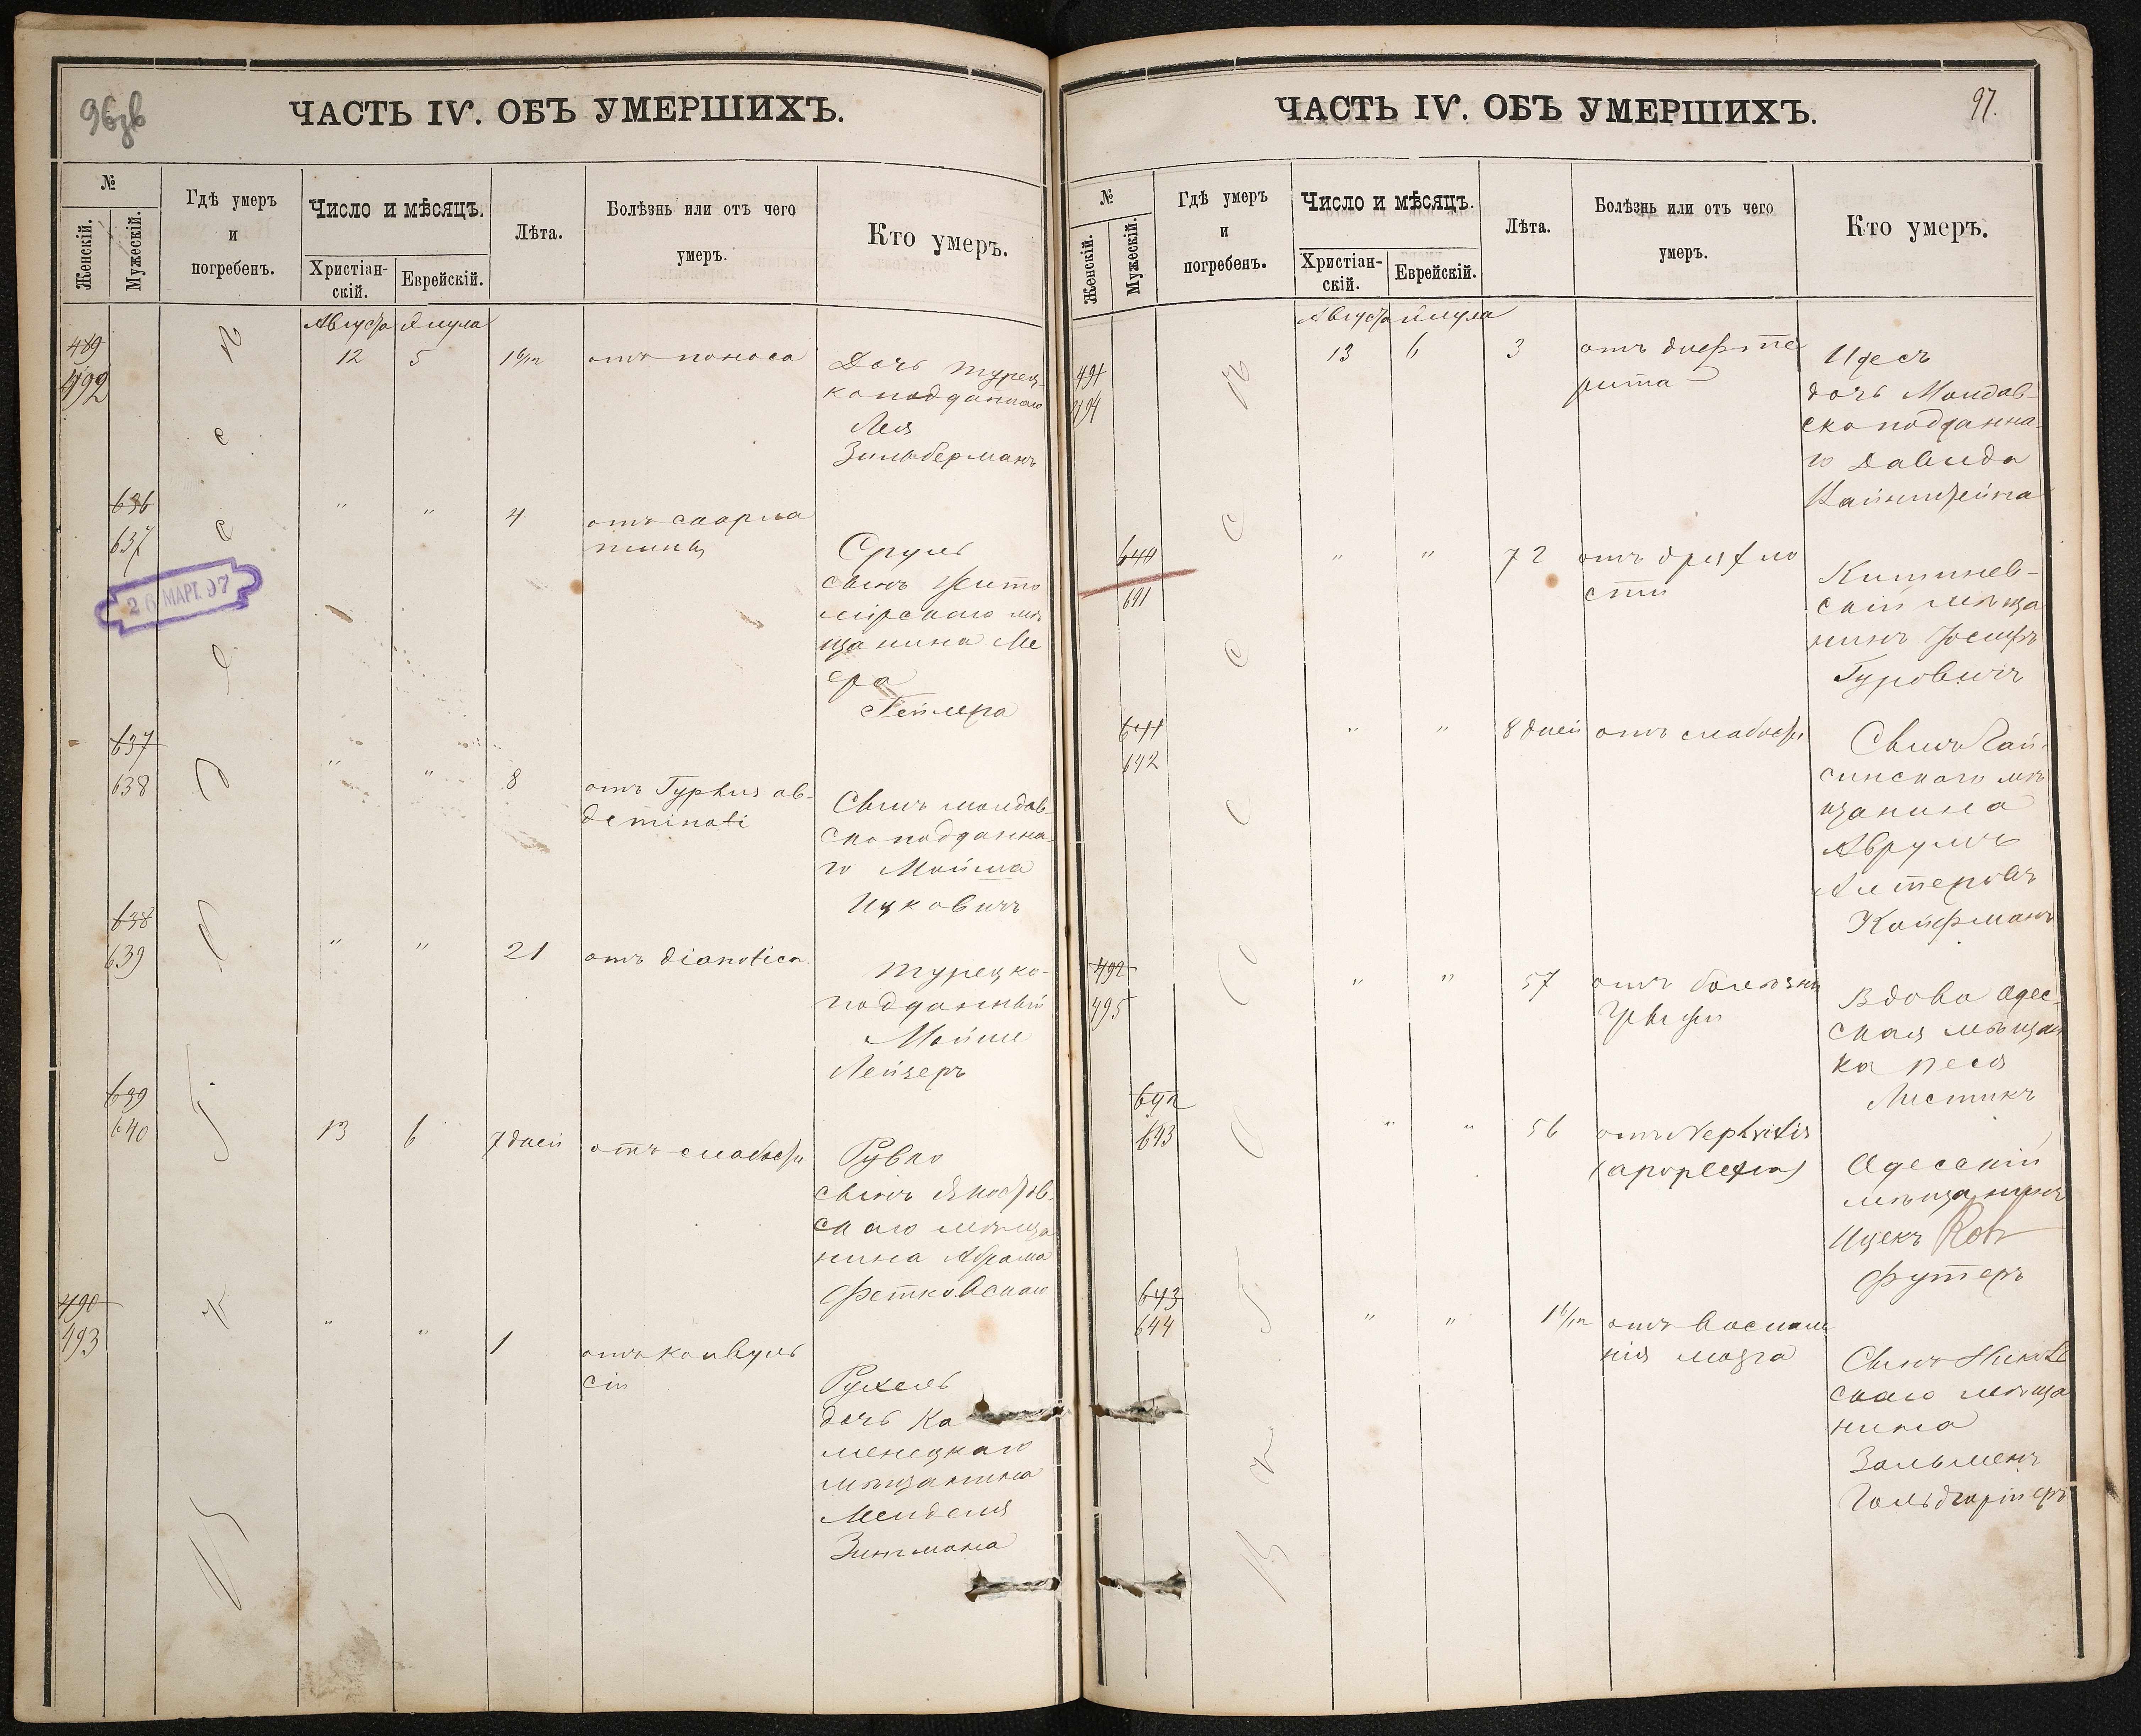 96об
ЧАСТЬ IV. ОБЪ УМЕРШИХЪ.
№
Женскій.
Мужескій.
Гдѣ умеръ
и
погребенъ.
Число и мѣсяцъ.
Христіан-
скій.
Еврейскій.
Лѣта.
Болѣзнь или отъ чего
умеръ.
Кто умеръ.
Августа Элула
489
492
12 5 1 6/12 отъ поноса
Дочь турец-
коподданнаго
Лея
Зильберманъ
636
637
" " 4 отъ скарла
тины
Сруль
сынъ Жито
мірскаго мѣ
щанина Ме
ера
Геймера
26 МАРТ. 97
637
638
" " 8 отъ Typhus ab-
deminati
Сынъ молдав-
скоподданна
го Мойша
Ицковичъ
638
639
" " 21 отъ
турецко-
подданный
Мойше
Лейзеръ
639
640
13 6 7 дней отъ слабости
Рувко
сынъ
скаго мѣща
нина Абрама
Фетковскаго
490
493
" " 1 отъ конвуль
сіи
Рухель
дочь Ка
менецкаго
мѣщанина
Менделя
Зингмана
О д е с с
97.
ЧАСТЬ IV. ОБЪ УМЕРШИХЪ.
№
Женскій.
Мужескій.
Гдѣ умеръ
и
погребенъ.
Число и мѣсяцъ.
Христіан-
скій.
Еврейскій.
Лѣта.
Болѣзнь или отъ чего
умеръ.
Кто умеръ.
Августа Элула
491
494
13 6 3 отъ дифте
рита
Идесъ
дочь Молдав-
скоподданна-
го Давида
Вайнштейна
640
641
" " 72 отъ дряхло
сти
Кишинев-
скій мѣща
нинъ Іосифъ
Гуровичъ
641
642
" " 8 дней отъ слабости
Сынъ Гай-
синскаго мѣ
щанина
Аврумъ
Альтеровъ
Койфманъ
492
495
" " 57 отъ болѣзни
Вдова Одес-
ская мѣщан
ка Песя
Листикъ
642
643
" " 56 отъ Nephritis
(apoplexia)
Одесскій
мѣщанинъ
Ицекъ
Футеръ
643
644
" " 1 6/12 отъ воспале
нія мозга
Сынъ
скаго мѣща
нина
Зальменъ